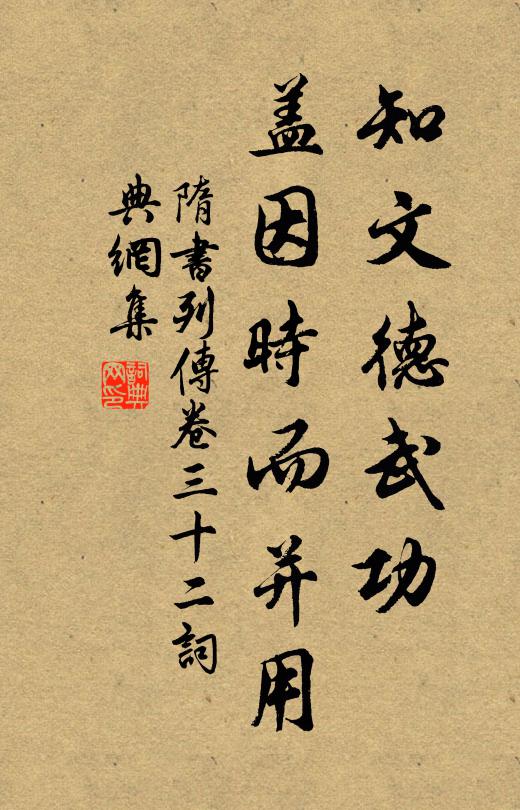 知文德武功
蓋因時而并用
隋書列傳卷三十二詞
典網集
詞典
网印